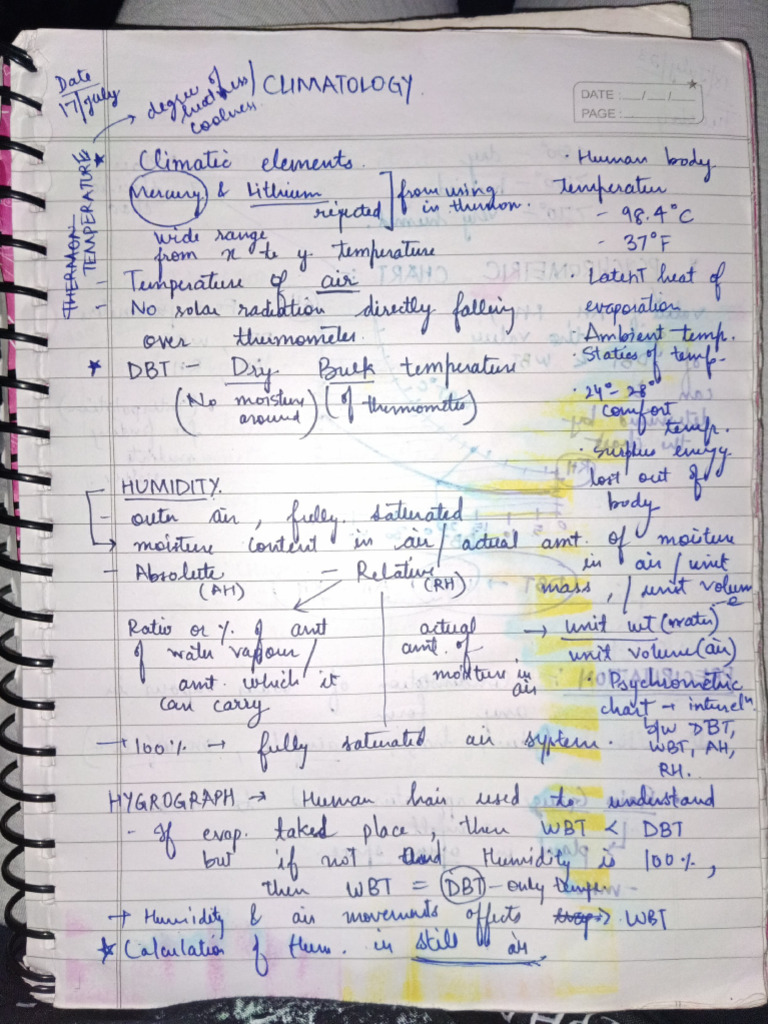 Date
17/July
degree of
hotness/
coolness
CLIMATOLOGY
DATE: __/__/__
PAGE:
THERMON
TEMPERATURE
Climatic elements.
Mercury & Lithium
rejected
from using
in thermom.
wide range
from x to y temperature
- Temperature of air
- No solar radiation directly falling
over thermometer.
DBT - Dry Bulk temperature
(No moisture around) (of thermometer)
· Human body
temperature
- 98.4°C
- 37°F
· Latent heat of
evaporation
· Ambient temp.
· Statics of temp.
· 24° - 28°
comfort
temp.
· Surplus energy
lost out of
body
HUMIDITY.
- outer air, fully saturated
→ moisture content in air / actual amt. of moisture
in air / unit
mass, / unit volume
- Absolute (AH) - Relative (RH)
Ratio or % of amt
of water vapour /
amt. which it
can carry
actual
amt. of
moisture in
air
→ unit wt (water)
unit volume (air)
· Psychrometric
chart → interrelⁿ
b/w DBT,
WBT, AH,
RH.
→ 100% → fully saturated air system.
HYGROGRAPH → Human hair used to understand
- If evap. taked place, then WBT < DBT
but if not and Humidity is 100%,
then WBT = DBT - only tempr
→ Humidity & air movements affects WBT
Calculation of Hum. in still air